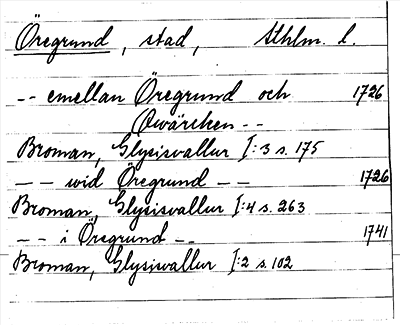 Öregrund, stad, Sthlm. l.
-- emellan Öregrund och 1726
Qwärcken --
Broman, Glysisvallur I:3 s. 175
-- wid Öregrund -- 1726
Broman, Glysisvallur I:4 s. 263
-- i Öregrund -- 1741
Broman, Glysisvallur I:2 s. 102